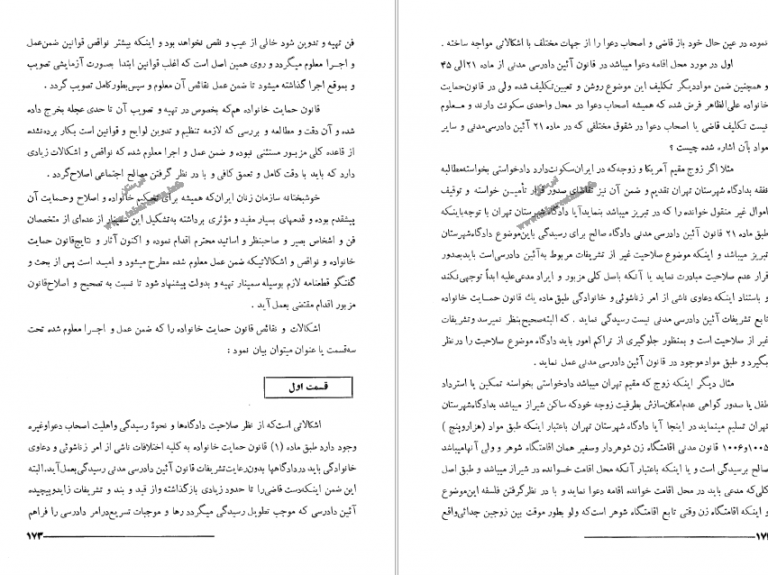 فن تهیه و تدوین شود خالی از عیب و نقص نخواهد بود و اینکه بیشتر نواقص قوانین ضمن‌عمل
و اجرا معلوم میگردد و روی همین اصل است که اغلب قوانین ابتدا بصورت آزمایشی تصویب
و بموقع اجرا گذاشته میشود تا ضمن عمل نقائص آن معلوم و سپس بطور کامل تصویب گردد .
قانون حمایت خانواده هم که بخصوص در تهیه و تصویب آن تا حدی عجله بخرج داده
شده و آن دقت و مطالعه و بررسی که لازمه تنظیم و تدوین لوایح و قوانین است بکار برده نشده
از قاعده کلی مزبور مستثنی نبوده و ضمن عمل و اجرا معلوم شده که نواقص و اشکالات زیادی
دارد که باید با دقت کامل و تعمق کافی و با در نظر گرفتن مصالح اجتماعی اصلاح گردد .
خوشبختانه سازمان زنان ایران که همیشه برای تحکیم خانواده و اصلاح و حمایت آن
پیشقدم بوده و قدمهای بسیار مفید و مؤثری برداشته به تشکیل این سمینار از عده‌ای از متخصصان
فن و اشخاص بصیر و صاحبنظر و اساتید محترم اقدام نموده و اکنون آثار و نتایج قانون حمایت
خانواده و نواقص و اشکالاتیکه ضمن عمل معلوم شده مطرح میشود و امید است پس از بحث و
گفتگو قطعنامه لازم بوسیله سمینار تهیه و بدولت پیشنهاد شود تا نسبت به تصحیح و اصلاح قانون
مزبور اقدام مقتضی بعمل آید .
اشکالات و نقائص قانون حمایت خانواده را که ضمن عمل و اجرا معلوم شده تحت
سه قسمت یا عنوان میتوان بیان نمود :
قسمت اول
اشکالاتی است که از نظر صلاحیت دادگاهها و نحوهٔ رسیدگی و اهلیت اصحاب دعوا و غیره
وجود دارد طبق ماده (۱) قانون حمایت خانواده به کلیه اختلافات ناشی از امر زناشوئی و دعاوی
خانوادگی باید در دادگاهها بدون رعایت تشریفات قانون آئین دادرسی مدنی رسیدگی بعمل آید. البته
این ضمن اینکه دست قاضی را تا حدود زیادی باز گذاشته و از قید و بند و تشریفات زاید و پیچیده
آئین دادرسی که موجب تطویل رسیدگی میگردد رها و موجبات تسریع در امر دادرسی را فراهم
۱۷۳
نموده در عین حال خود باز قاضی و اصحاب دعوا را از جهات مختلف با اشکالاتی مواجه ساخته .
اول در مورد محل اقامه دعوا میباشد در قانون آئین دادرسی مدنی از ماده ۲۱ الی ۴۵
و همچنین ضمن مواد دیگر تکلیف این موضوع روشن و تعیین تکلیف شده ولی در قانون حمایت
خانواده علی‌الظاهر فرض شده که همیشه اصحاب دعوا در محل واحدی سکونت دارند و معلوم
نیست تکلیف قاضی یا اصحاب دعوا در شقوق مختلفی که در ماده ۲۱ آئین دادرسی مدنی و سایر
مواد بآن اشاره شده چیست ؟
مثلا اگر زوج مقیم آمریکا و زوجه که در ایران سکونت دارد دادخواستی بخواسته مطالبه
فقه بدادگاه شهرستان تهران تقدیم و ضمن آن نیز تقاضای صدور قرار تأمین خواسته و توقیف
اموال غیر منقول خوانده را که در تبریز میباشد بنماید آیا دادگاه شهرستان تهران با توجه باینکه
طبق ماده ۲۱ قانون آئین دادرسی مدنی دادگاه صالح برای رسیدگی باین موضوع دادگاه شهرستان
تبریز میباشد و اینکه موضوع صلاحیت غیر از تشریفات مربوط به آئین دادرسی است باید بصدور
قرار عدم صلاحیت مبادرت نماید یا آنکه باصل کلی مزبور و ایراد مدعی علیه ابداً توجهی نکند
و باستناد اینکه دعاوی ناشی از امر زناشوئی و خانوادگی طبق ماده یک قانون حمایت خانواده
تابع تشریفات آئین دادرسی مدنی نیست رسیدگی نماید . که البته صحیح بنظر نمیرسد و تشریفات
غیر از صلاحیت است و بمنظور جلوگیری از تراکم امور باید دادگاه موضوع صلاحیت را در نظر
بگیرد و طبق مواد موجود در قانون آئین دادرسی مدنی عمل نماید .
مثال دیگر اینکه زوج که مقیم تهران میباشد دادخواستی بخواسته تمکین یا استرداد
طفل یا صدور گواهی عدم امکان سازش بطرفیت زوجه خود که ساکن شیراز میباشد بدادگاه شهرستان
تهران تسلیم مینماید در اینجا آیا دادگاه شهرستان تهران باعتبار اینکه طبق مواد (هزار و پنج )
۱۰۰۵ و ۱۰۰۶ قانون مدنی اقامتگاه زن شوهردار و صغیر همان اقامتگاه شوهر و ولی آنها میباشد
صالح برسیدگی است و یا اینکه باعتبار آنکه محل اقامت خوانده در شیراز میباشد و طبق اصل
کلی که مدعی باید در محل اقامت خوانده اقامه دعوا نماید و با در نظر گرفتن فلسفه این موضوع
و اینکه اقامتگاه زن وقتی تابع اقامتگاه شوهر است که ولو بطور موقت بین زوجین جدائی واقع